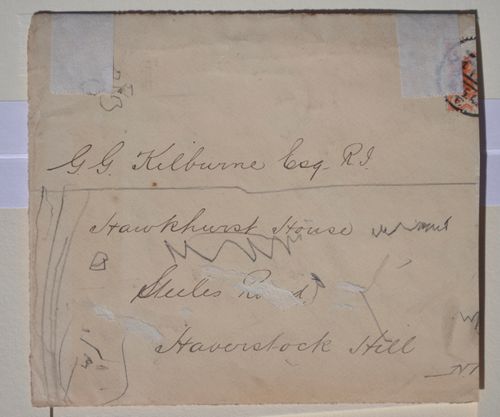 G. G. Kilburne Esq. R.I.
Hawkhurst House
Steeles Road
Haverstock Hill